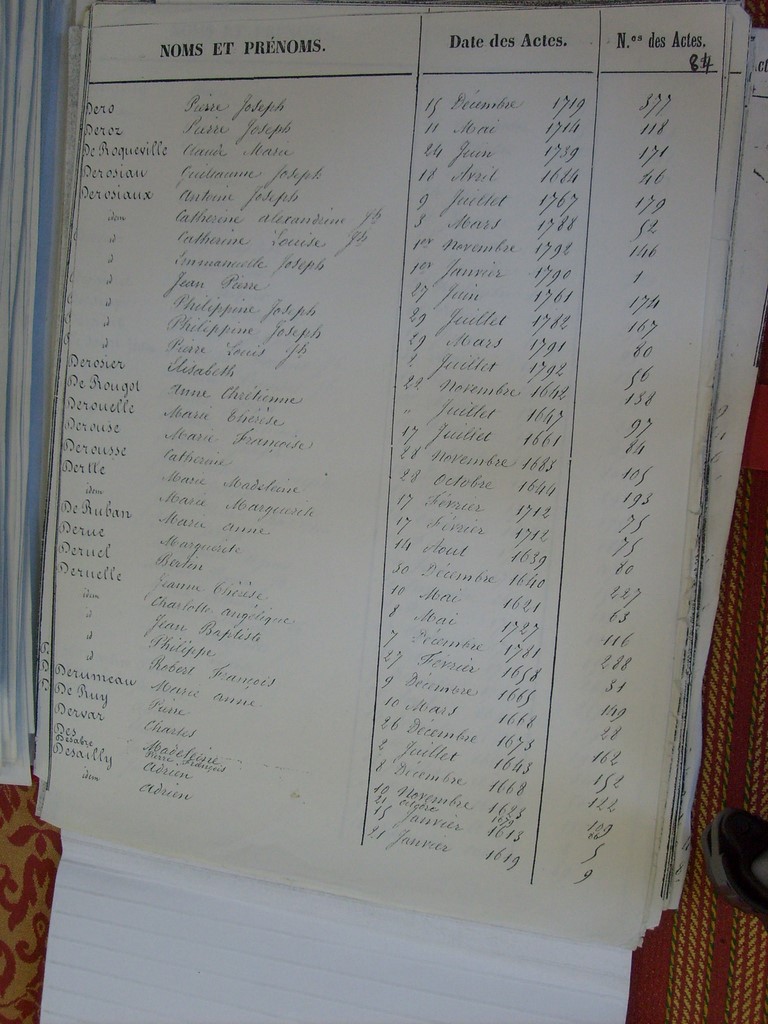 NOMS ET PRÉNOMS. Date des Actes. N.os des Actes.
84
Dero Pierre Joseph 15 Décembre 1719 377
Deroz Pierre Joseph 11 Mai 1714 118
De Roqueville Claude Marie 24 Juin 1739 171
Derosiau Guillaume Joseph 18 Avril 1684 46
Derosiaux Antoine Joseph 9 Juillet 1767 179
idem Catherine alexandrine Jh 3 Mars 1788 52
d Catherine Louise Jh 1er Novembre 1792 146
d Immanuelle Joseph 1er Janvier 1790 1
d Jean Pierre 27 Juin 1761 174
d Philippine Joseph 29 Juillet 1782 167
d Philippine Joseph 29 Mars 1791 80
d Pierre Louis Jh 2 Juillet 1792 56
Derosier Elisabeth 22 Novembre 1642 138
De Rougot Anne Chrétienne " Juillet 1647 97
Derouelle Marie Thérèse 17 Juillet 1661 84
Derouse Marie Françoise 28 Novembre 1683 105
Derousse Catherine 28 octobre 1644 193
Dertle Marie Madeleine 17 Février 1712 75
idem Marie Marguerite 17 Février 1712 75
De Ruban Marie anne 14 Aout 1639 80
Derue Marguerite 30 Décembre 1640 227
Deruel Bertin 10 Mai 1621 63
Deruelle Jeanne Thérèse 8 Mai 1727 116
idem Charlotte angélique 7 Décembre 1781 288
d Jean Baptiste 27 Février 1658 31
d Philippe 9 Décembre 1665 149
d Robert François 10 Mars 1668 28
Derumeau Marie anne 26 Décembre 1673 162
De Ruy Pierre 2 Juillet 1643 152
Dervar Charles 8 Décembre 1668 122
Des Madeleine 10 Novembre 1623 109
Desabre Pierre François 21 octobre 1679
Desailly Adrien 15 Janvier 1613 5
idem Adrien 21 Janvier 1619 9